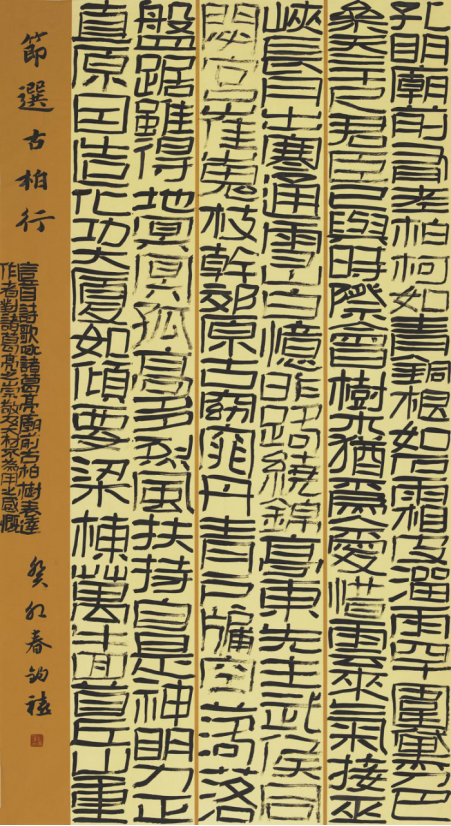 孔明廟前有老柏柯如青銅根如石霜皮溜雨四十圍黛色
參天二千尺君臣已與時際會樹木猶為人愛惜雲來氣接巫
峽長月出寒通雪山白憶昨路繞錦亭東先主武侯同
閟宮崔嵬枝幹郊原古窈窕丹青戶牖空落落
盤踞雖得地冥冥孤高多烈風扶持自是神明力正
直原因造化功大廈如傾要梁棟萬牛回首丘山重
節選古柏行
首詩歌咏諸葛亮廟前古柏樹表達
作者對諸葛亮之崇敬及材用之感慨
癸卯春